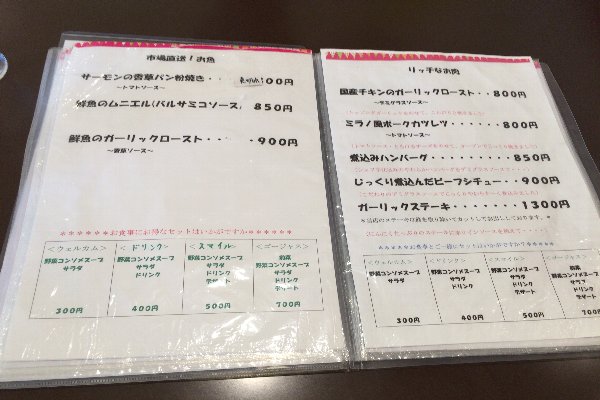 市場直送！お魚
サーモンの香草パン粉焼き・・ 売切れ！00円
～トマトソース～
鮮魚のムニエル(バルサミコソース) 850円
鮮魚のガーリックロースト・・・・900円
～香草ソース～
＊＊＊＊＊＊お食事にお得なセットはいかがですか＊＊＊＊＊＊
＜ウェルカム＞
野菜コンソメスープ
サラダ
300円
＜ドリンク＞
野菜コンソメスープ
サラダ
ドリンク
400円
＜スマイル＞
野菜コンソメスープ
サラダ
ドリンク
デザート
500円
＜ゴージャス＞
前菜
野菜コンソメスープ
サラダ
ドリンク
デザート
700円
リッチなお肉
国産チキンのガーリックロースト・・800円
～デミグラスソース～
ミラノ風ポークカツレツ・・・・・・800円
～トマトソース～
煮込みハンバーグ・・・・・・・・・850円
じっくり煮込んだビーフシチュー・・900円
ガーリックステーキ・・・・・・・1300円
＊＊＊＊＊＊お食事とご一緒にセットはいかがですか＊＊＊＊＊＊
＜ウェルカム＞
野菜コンソメスープ
サラダ
300円
＜ドリンク＞
野菜コンソメスープ
サラダ
ドリンク
400円
＜スマイル＞
野菜コンソメスープ
サラダ
ドリンク
デザート
500円
＜ゴージャス＞
前菜
野菜コンソメスープ
サラダ
ドリンク
デザート
700円